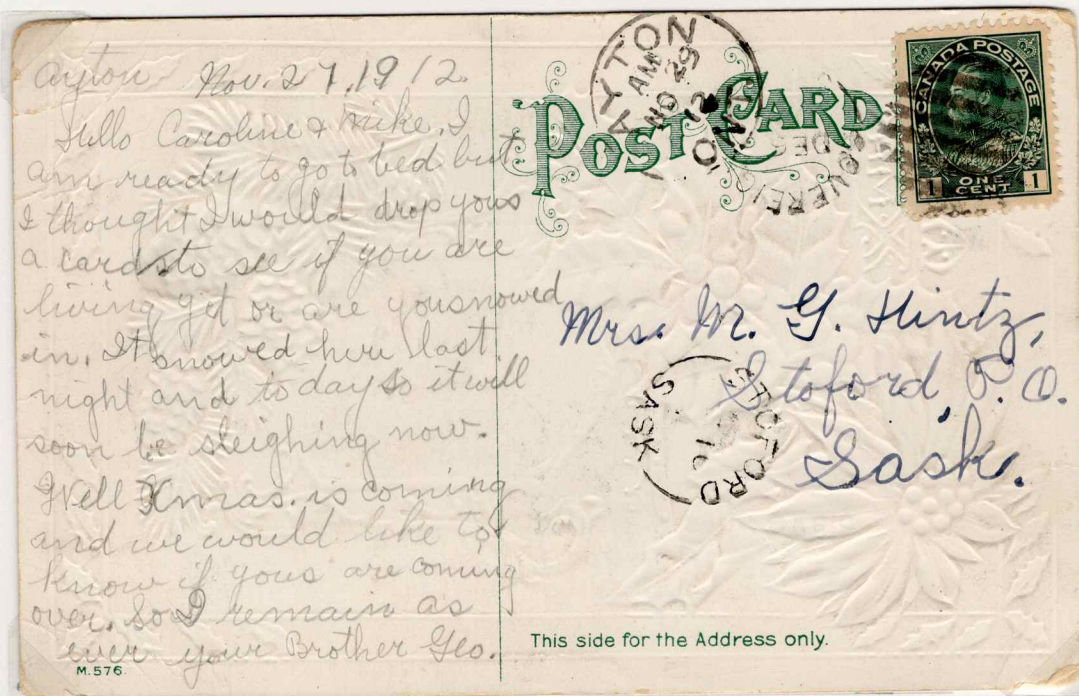 Ayton Nov. 27, 1912.
Hello Caroline & Mike, I
am ready to go to bed but
I thought I would drop yous
a card to see if you are
living yet or are you snowed
in. It snowed here last
night and to day so it will
soon be sleighing now.
Well Xmas. is coming
and we would like to
know if yous are coming
over. So I remain as
ever your Brother Geo.
M.576.
POST CARD
AYTON
AM
NO 29
12
ONT
SOVEREIGN
DE 6
CANADA POSTAGE
1 ONE CENT 1
Mrs. M. G. Hintz,
Stoford, P. O.
Sask.
SASK
This side for the Address only.